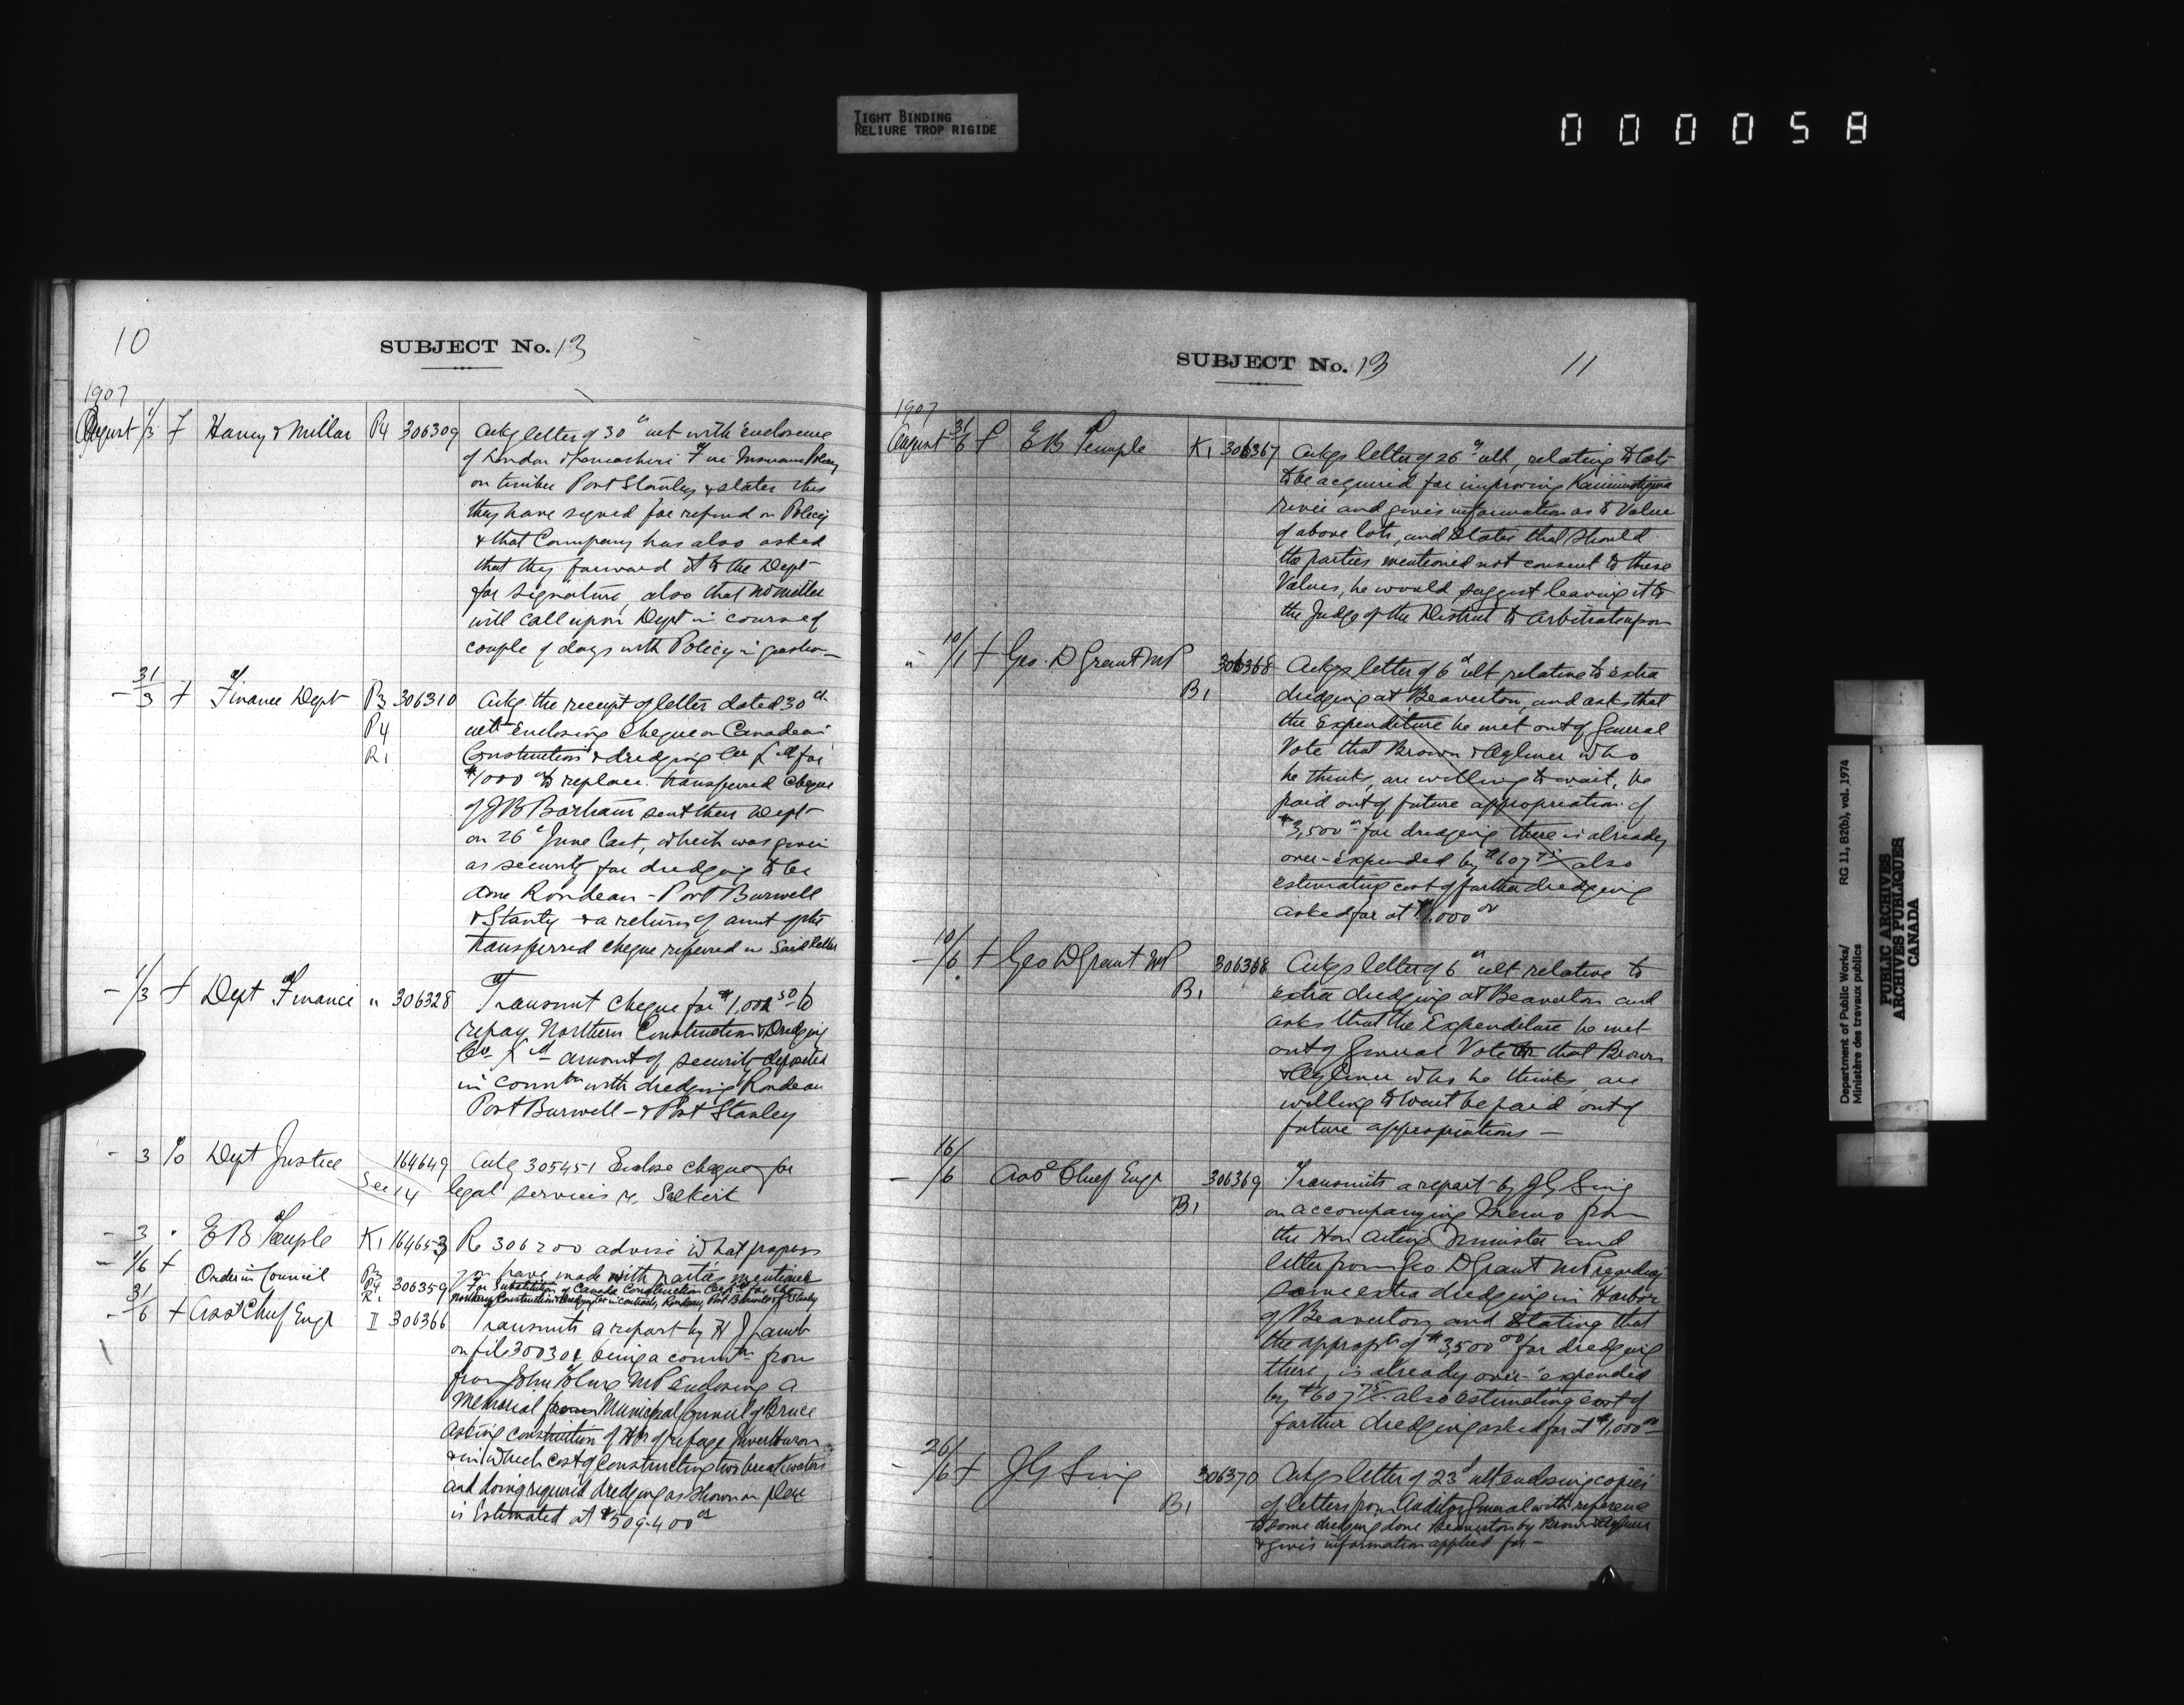 TIGHT BINDING
RELIURE TROP RIGIDE
0 0 0 0 5 8
10
SUBJECT No. 13
1907
August 1/3 f Harvey & Millar P4 306309 Ackg letter of 30th ult with enclosure
of London & Lancashire Fire Insurance Policy
on timber Port Stanley & states this
they have signed for refund on Policy
& that Company has also asked
that they forward it to the Dept
for signature, also that
will call upon Dept in course of
couple of days with Policy in question
- 31/3 f Finance Dept P3 306310 Ackg the receipt of letter dated 30th
P4 ult Enclosing Cheque on Canadian
R1 Construction & dredging Co Ltd for
$1000 00 to replace transferred cheque
of J B Barham sent their Dept
on 26th June last, which was given
as security for dredging to be
done Rondeau - Port Burwell
& Stanley & a return of amt of the
transferred cheque referred in said letter
- 1/3 f Dept Finance " 306328 Transmit cheque for $1,002 50 to
repay Northern Construction & Dredging
Co Ltd amount of security deposited
in conntn with dredging Rondeau
Port Burwell - & Port Stanley
- 3 % Dept Justice 164649 Ackg 305451 Enclose cheque for
See 14 legal services re. Selkirk
- 3 " E B Temple K1 164653 Re 306200 advise what progress
you have made with parties mentioned
- 1/6 f Order in Council P3 P4 R1 306359 For Substitution of Canada Construction Co Ltd for the
Northern Construction & Dredging Co in contracts, Rondeau, Port Burwell & Pt Stanley
- 31/6 f Asst Chief Engr II 306366 Transmits a report by H J Lamb
on file 300304 being a commtn from
from John Tolmie MP Enclosing a
Memorial from Municipal Council of Bruce
Asking construction of Hbr of refuge Inverhuron
& in which cost of Constructing two breakwaters
and doing required dredging as shown on plan
is Estimated at $509400 00
SUBJECT No. 13
11
1907
August 31/6 f E B Temple K1 306367 Ackgs letter of 26th ult, relating to lots
to be acquired for improving Kaministiquia
river and gives information as to Value
of above lots, and states that should
the parties mentioned not consent to these
Values, he would suggest leaving it to
the Judge of the District to arbitrate upon
" 10/1 f Geo. D Grant MP 306368 Ackgs letter of 6th ult relating to extra
B1 dredging at Beaverton, and asks that
the Expenditure be met out of General
Vote that Brown & Aylmer who
he thinks, are willing to wait, be
paid out of future appropriation of
$3,500 00 for dredging there is already
over-expended by $607 75 also
estimating cost of further dredging
asked for at $1,000 00
- 10/6 f Geo D Grant MP 306368 Ackgs letter of 6th ult relative to
B1 extra dredging at Beaverton and
asks that the Expenditure be met
out of General Vote or that Brown
& Aylmer who he thinks, are
willing to wait be paid out of
future appropriations —
- 16/6 Asst Chief Engr 306369 Transmits a report by J G Sing
B1 on accompanying Memo from
the Hon Acting Minister and
letter from Geo. D Grant MP regarding
some extra dredging in Harbor
of Beaverton, and stating that
the appropt of $3,500 00 for dredging
there, is already over-expended
by $607 75 also estimating cost of
further dredging asked for at $1,000 00
- 26/6 f J G Sing 306370 Ackgs letter of 23d ult enclosing copies
B1 of letters from Auditor General with reference
to some dredging done Beaverton by Brown & Aylmer
& gives information applied for —
Department of Public Works/
Ministère des travaux publics
RG 11, B2(b), vol. 1974
PUBLIC ARCHIVES
ARCHIVES PUBLIQUES
CANADA